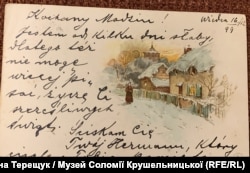 Wiedeń 16/12
99
Kochany Modziu!
Jestem od kilku dni słaby,
dlatego też
nie mogę
więcej pisać
życzę Ci
szczęśliwych
świąt.
Ściskam Cię
Twój Hermann, który
на Терещук / Музей Соломії Крушельницької (RFE/RL)